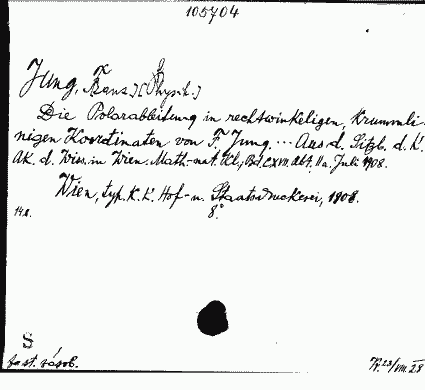 105704
Jung, Frans) (Physik.)
Die Polarableitung in rechtwinkeligen, krummli-
nigen Koordinaten von F. Jung. ... Aus d. Sitzb. d. K.
Ak. d. Wiss. in Wien. Math.-nat. Kl., Bd. CXVII. Abt. IIa. Juli 1908.
Wien, typ. K. K. Hof- u. Staatsdruckerei, 1908.
14 s. 8°
S
23/VIII 28